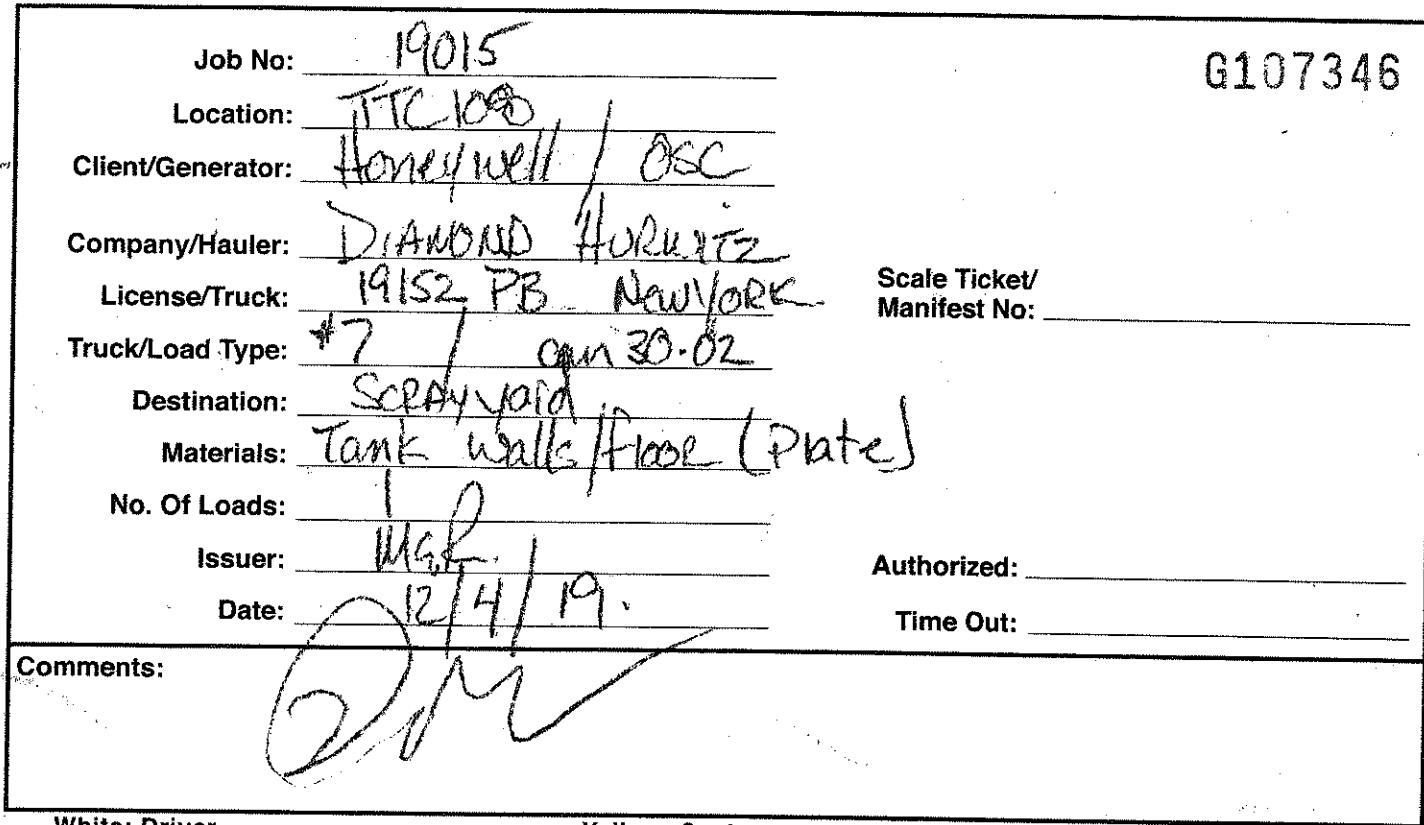 G107346
Job No: 19015
Location: TTC
Client/Generator: Honeywell / OSC
Company/Hauler: DIAMOND HURWITZ
License/Truck: 19152 PB NEW YORK
Scale Ticket/
Manifest No:
Truck/Load Type: #7 / 30-02
Destination: SCRAP yard
Materials: Tank Walls/floor (Plate)
No. Of Loads: 1
Issuer:
Authorized:
Date: 12/4/19.
Time Out:
Comments:
White: Driver